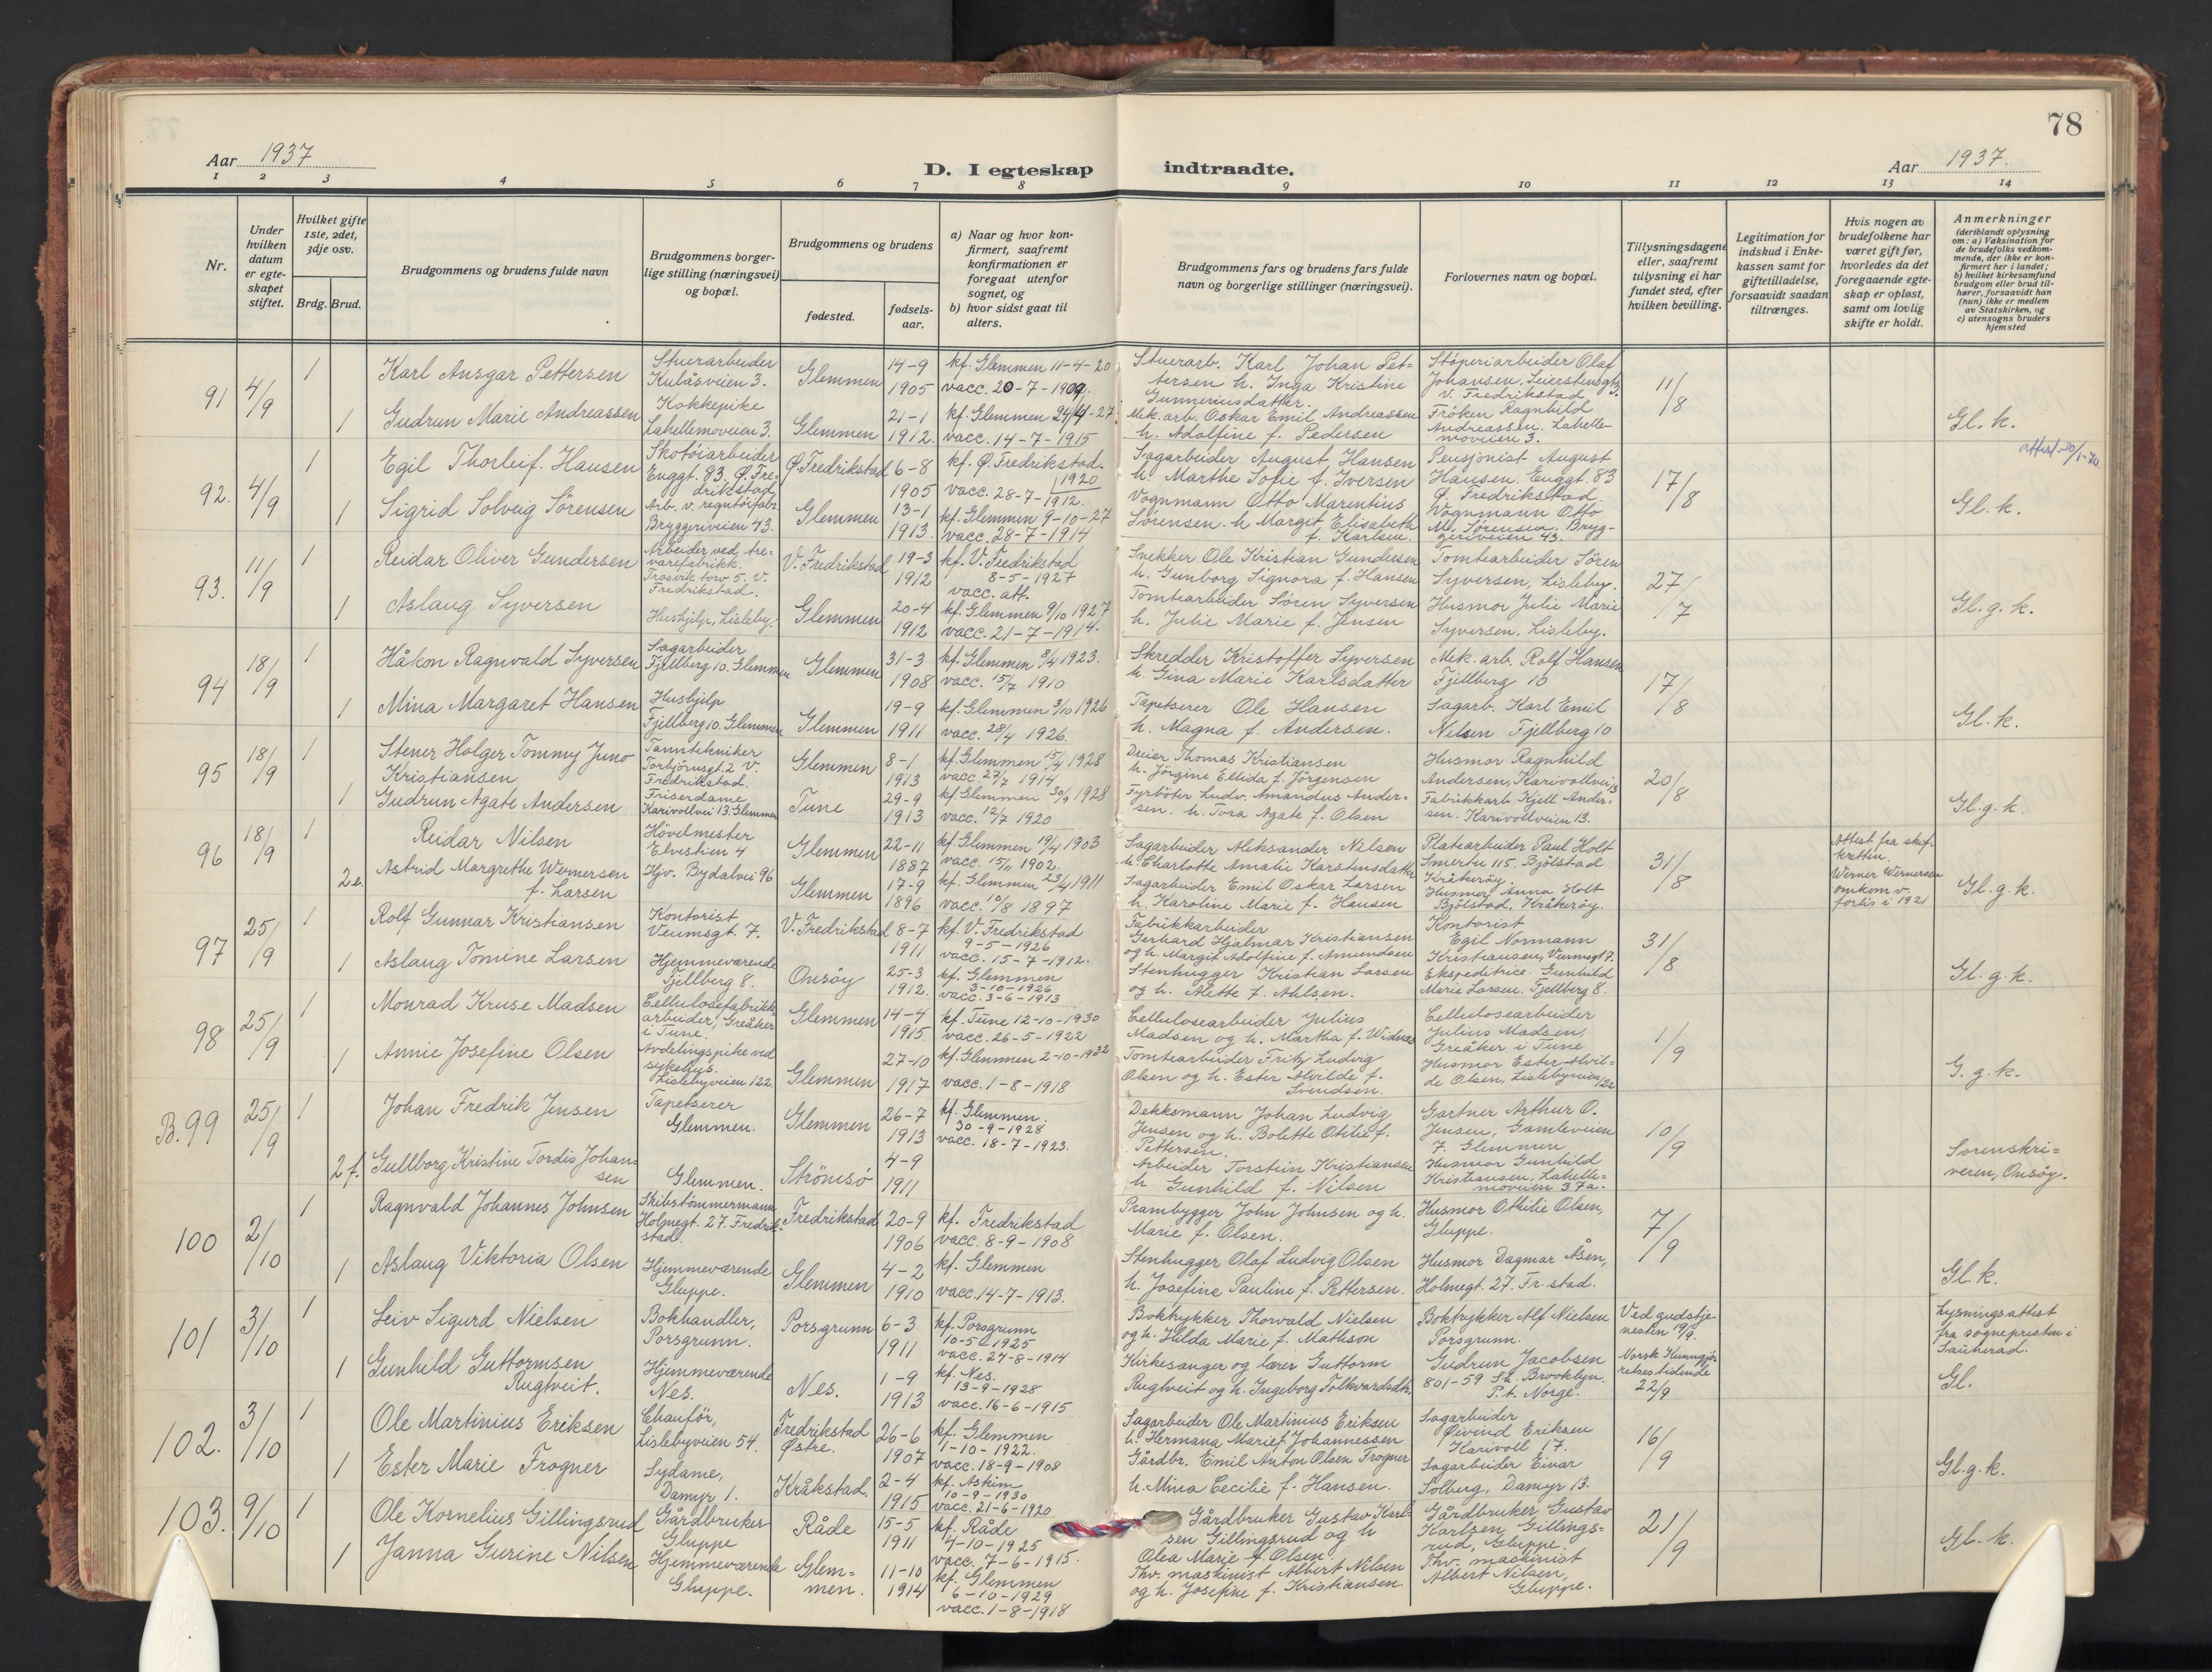 78
Aar 1937
D. I egteskap indtraadte.
Aar 1937.
1 2 3 4 5 6 7 8 9 10 11 12 13 14
Nr.
Under hvilken datum er egte-skapet stiftet.
Hvilket gifte 1ste, 2det, 3dje osv.
Brdg. Brud.
Brudgommens og brudens fulde navn
Brudgommens borger-lige stilling (næringsvei) og bopæl.
Brudgommens og brudens
fødested.
fødsels-aar.
a) Naar og hvor kon-firmert, saafremt konfirmationen er foregaat utenfor sognet, og
b) hvor sidst gaat til alters.
Brudgommens fars og brudens fars fulde navn og borgerlige stillinger (næringsvei).
Forlovernes navn og bopæl.
Tillysningsdagene eller, saafremt tillysning ei har fundet sted, efter hvilken bevilling.
Legitimation for indskud i Enke-kassen samt for giftetilladelse, forsaavidt saadan tiltrænges.
Hvis nogen av brudefolkene har været gift før, hvorledes da det foregaaende egte-skap er opløst, samt om lovlig skifte er holdt.
Anmerkninger (deriblandt oplysning om: a) Vaksination for de brudefolks vedkom-mende, der ikke er kon-firmert her i landet; b) hvilket kirkesamfund brudgom eller brud til-hører, forsaavidt han (hun) ikke er medlem av Statskirken, og c) utensogns bruders hjemsted
91 4/9 1 Karl Ansgar Pettersen Stuerarbeider Kulåsveien 3. Glemmen 14-9 1905 kf. Glemmen 11-4-20 vacc. 20-7-1909. Stuerarb. Karl Johan Pet-tersen h. Inga Kristine Gunneriusdatter. Støperiarbeider Olaf Johansen. V. Fredrikstad 11/8
1 Gudrun Marie Andreassen Kokkepike Lahellemoveien 3. Glemmen 21-1 1912. kf. Glemmen 24/4-27 vacc. 14-7-1915 Mek. arb. Oskar Emil Andreassen h. Adolfine f. Pedersen Frøken Ragnhild Andreassen. Lahelle-moveien 3. Gl. k.
92. 4/9 1 Egil Thorleif. Hansen Skotøiarbeider Enggt. 83. Ø. Fre-drikstad Ø. Fredrikstad 6-8 1905 kf. Ø. Fredrikstad. 1920 vacc. 28-7-1912. Sagarbeider August Hansen h. Marthe Sofie f. Iversen Pensjonist August Hansen. Enggt. 83 Ø. Fredrikstad. 17/8
1 Sigrid Solveig Sørensen Arb. v. regntøifabr. Bryggeriveien 43. Glemmen 13-1 1913. kf. Glemmen 9-10-27 vacc. 28-7-1914 Vognmann Otto Marentius Sørensen. h Margit Elisabeth f. Karlsen. Vognmann Otto M. Sørensen. Bryg-geriveien 43. Gl. k.
93. 11/9 1 Reidar Oliver Gundersen Arbeider ved tre-varefabrikk. Trosvik torv 5. V. Fredrikstad. V. Fredrikstad 19-3 1912 kf. V. Fredrikstad 8-5-1927 vacc. att. Snekker Ole Kristian Gundersen h. Gunborg Signora f. Hansen Tomtearbeider Søren Syversen, Lisleby. 27/7
1 Aslaug Syversen Hushjelp, Lisleby. Glemmen 20-4 1912 kf. Glemmen 9/10 1927 vacc. 21-7-1914. Tomtearbeider Søren Syversen h. Julie Marie f. Jensen Husmor Julie Marie Syversen. Lisleby. Gl. g. k.
94 18/9 1 Håkon Ragnvald Syversen Sagarbeider Fjellberg 10. Glemmen Glemmen 31-3 1908 kf. Glemmen 8/4 1923. vacc. 15/7 1910 Skredder Kristoffer Syversen h. Gina Marie Karlsdatter Mek. arb. Rolf Hansen Fjellberg 10 17/8
1 Mina Margaret Hansen Hushjelp Fjellberg 10. Glemmen Glemmen 19-9 1911 kf. Glemmen 3/10 1926 vacc. 28/4 1926. Tapetserer Ole Hansen h. Magna f. Andersen. Sagarb. Karl Emil Nilsen Fjellberg 10 Gl. k.
95 18/9 1 Stener Holger Tommy Juno Kristiansen Tanntekniker Torbjørnsgt. 2 V. Fredrikstad. Glemmen 8-1 1913 kf. Glemmen 15/4 1928 vacc. 27/7 1914 Dreier Thomas Kristiansen h. Jörgine Ellida f. Jörgensen Husmor Ragnhild Andersen, Karivollvei 13 20/8
1 Gudrun Agate Andersen Friserdame Karivollvei 13. Glemmen Tune 29-9 1913 kf. Glemmen 30/9 1928 vacc. 12/7 1920 Fyrböter Ludv. Amandus Ander-sen. h. Tora Agate f. Olsen Fabrikkarb Kjell Ander-sen. Karivollveien 13. Gl. g. k.
96 18/9 1 Reidar Nilsen Hövelmester Elvestien 4 Glemmen 22-11 1887 kf. Glemmen 19/4 1903 vacc. 15/11 1902. Sagarbeider Aleksander Nilsen h. Charlotte Amalie Karstensdatter Platearbeider Paul Holt Smertu 115. Bjölstad Kråkeröy. 31/8
2 e. Astrid Margrethe Wernersen f. Larsen Hjv. Bydalvei 96 Glemmen 17-9 1896 kf. Glemmen 23/4 1911 vacc. 10/8 1897 Sagarbeider Emil Oskar Larsen h. Karoline Marie f. Hansen Husmor Anna Holt Bjölstad, Kråkeröy. Attest fra skif-teretten. Werner Wernersen omkom v. forlis i 1921 Gl. g. k.
97 25/9 1 Rolf Gunnar Kristiansen Kontorist Veumsgt. 7. V. Fredrikstad 8-7 1911 kf. V. Fredrikstad 9-5-1926 vacc. 15-7-1912. Fabrikkarbeider Gerhard Hjalmar Kristiansen og h. Margit Adolfine f. Amundsen Kontorist Egil Normann Kristiansen, Veumsgt 7. 31/8
1 Aslaug Tomine Larsen Hjemmeværende Fjellberg 8. Onsøy 25-3 1912. kf. Glemmen 3-10-1926 vacc. 3-6-1913 Stenhugger Kristian Larsen og h. Alette f. Ahlsen. Ekspeditrice Gunhild Marie Larsen. Fjellberg 8. Gl. g. k.
98 25/9 1 Monrad Kruse Madsen Cellulosefabrikk-arbeider, Greåker i Tune. Glemmen 14-4 1915 kf. Tune 12-10-1930 vacc. 26-5-1922 Cellulosearbeider Julius Madsen og h. Martha f. Widnes Cellulosearbeider Julius Madsen, Greåker i Tune 1/9
1 Annie Josefine Olsen Avdelingspike ved sykehus. Lislebyveien 122. Glemmen 27-10 1917 kf. Glemmen 2-10-1932 vacc. 1-8-1918 Tomtearbeider Fritz Ludvig Olsen og h. Ester Alvilde f. Svendsen. Husmor Ester Alvil-de Olsen, Lislebyveien 122 G. g. k.
B. 99 25/9 1 Johan Fredrik Jensen Tapetserer Glemmen. Glemmen 26-7 1913 kf. Glemmen. 30-9-1928 vacc. 18-7-1923. Dekksmann Johan Ludvig Jensen og h. Bolette Otilie f. Pettersen. Gartner Arthur O. Jensen, Gamleveien 7. Glemmen 10/9
2 f. Gullborg Kristine Tordis Johan-sen Glemmen. Strömsö 4-9 1911 Arbeider Torstein Kristiansen h. Gunhild f. Nilsen Husmor Gunhild Kristiansen, Lahelle-moveien 37a. Sorenskri-veren, Onsøy.
100 2/10 1 Ragnvald Johannes Johnsen Skibstømmermann Holmegt. 27. Fredrik-stad. Fredrikstad 20-9 1906 kf. Fredrikstad vacc. 8-9-1908 Prambygger John Johnsen og h. Marie f. Olsen. Husmor Othilie Olsen, Gluppe. 7/9
1 Aslaug Viktoria Olsen Hjemmeværende Gluppe. Glemmen 4-2 1910 kf. Glemmen vacc. 14-7-1913. Stenhugger Olaf Ludvig Olsen h. Josefine Pauline f. Pettersen. Husmor Dagmar Åsen, Holmegt. 27. Fr. stad. Gl. k.
101 3/10 1 Leiv Sigurd Nielsen Bokhandler, Porsgrunn. Porsgrunn 6-3 1911 kf. Porsgrunn 10-5-1925 vacc. 27-8-1914 Boktrykker Thorvald Nielsen og h. Hilda Marie f. Mathson Boktrykker Alf Nielsen Porsgrunn. Ved gudstje-nesten 19/9. Lysningsattest fra sognepresten i Sauherad.
1 Gunhild Guttormsen Rugtveit. Hjemmeværende Nes. Nes. 1-9 1913 kf. Nes. 13-9-1928 vacc. 16-6-1915 Kirkesanger og lærer Guttorm Rugtveit og h. Ingeborg Folkvardsdtr. Gudrun Jacobsen 801-59 St. Brooklyn. P.t. Norge. Norsk Kunngjø-relsestidende 22/9 Gl.
102. 3/10 1 Ole Martinius Eriksen Chauför, Lislebyveien 54. Fredrikstad Østre. 26-6 1907 kf. Glemmen 1-10-1922. vacc. 18-9-1908 Sagarbeider Ole Martinius Eriksen h. Hermana Marie f. Johannessen Sagarbeider Øivind Eriksen Karivoll 17. 16/9
1 Ester Marie Frogner Sydame, Damyr 1. Kråkstad. 2-4 1915 kf. Askim 10-9-1930 vacc. 21-6-1920 Gårdbr. Emil Anton Olsen Frogner h. Mina Cecilie f. Hansen. Sagarbeider Einar Solberg, Damyr 13. Gl. g. k.
103. 9/10 1 Ole Kornelius Gillingsrud Gårdbruker Gluppe Råde 15-5 1911 kf. Råde 4-10-1925 vacc. 7-6-1915. Gårdbruker Gustav Karl-sen Gillingsrud og h Olea Marie f. Olsen. Gårdbruker Gustav Karlsen Gillings-rud, Gluppe. 21/9
1 Janna Gurine Nilsen Hjemmeværende Gluppe. Glem-men. 11-10 1914 kf. Glemmen 6-10-1929 vacc. 1-8-1918 Thv. maskinist Albert Nilsen og h. Josefine f. Kristiansen. Thv. maskinist Albert Nilsen, Gluppe. Gl. k.